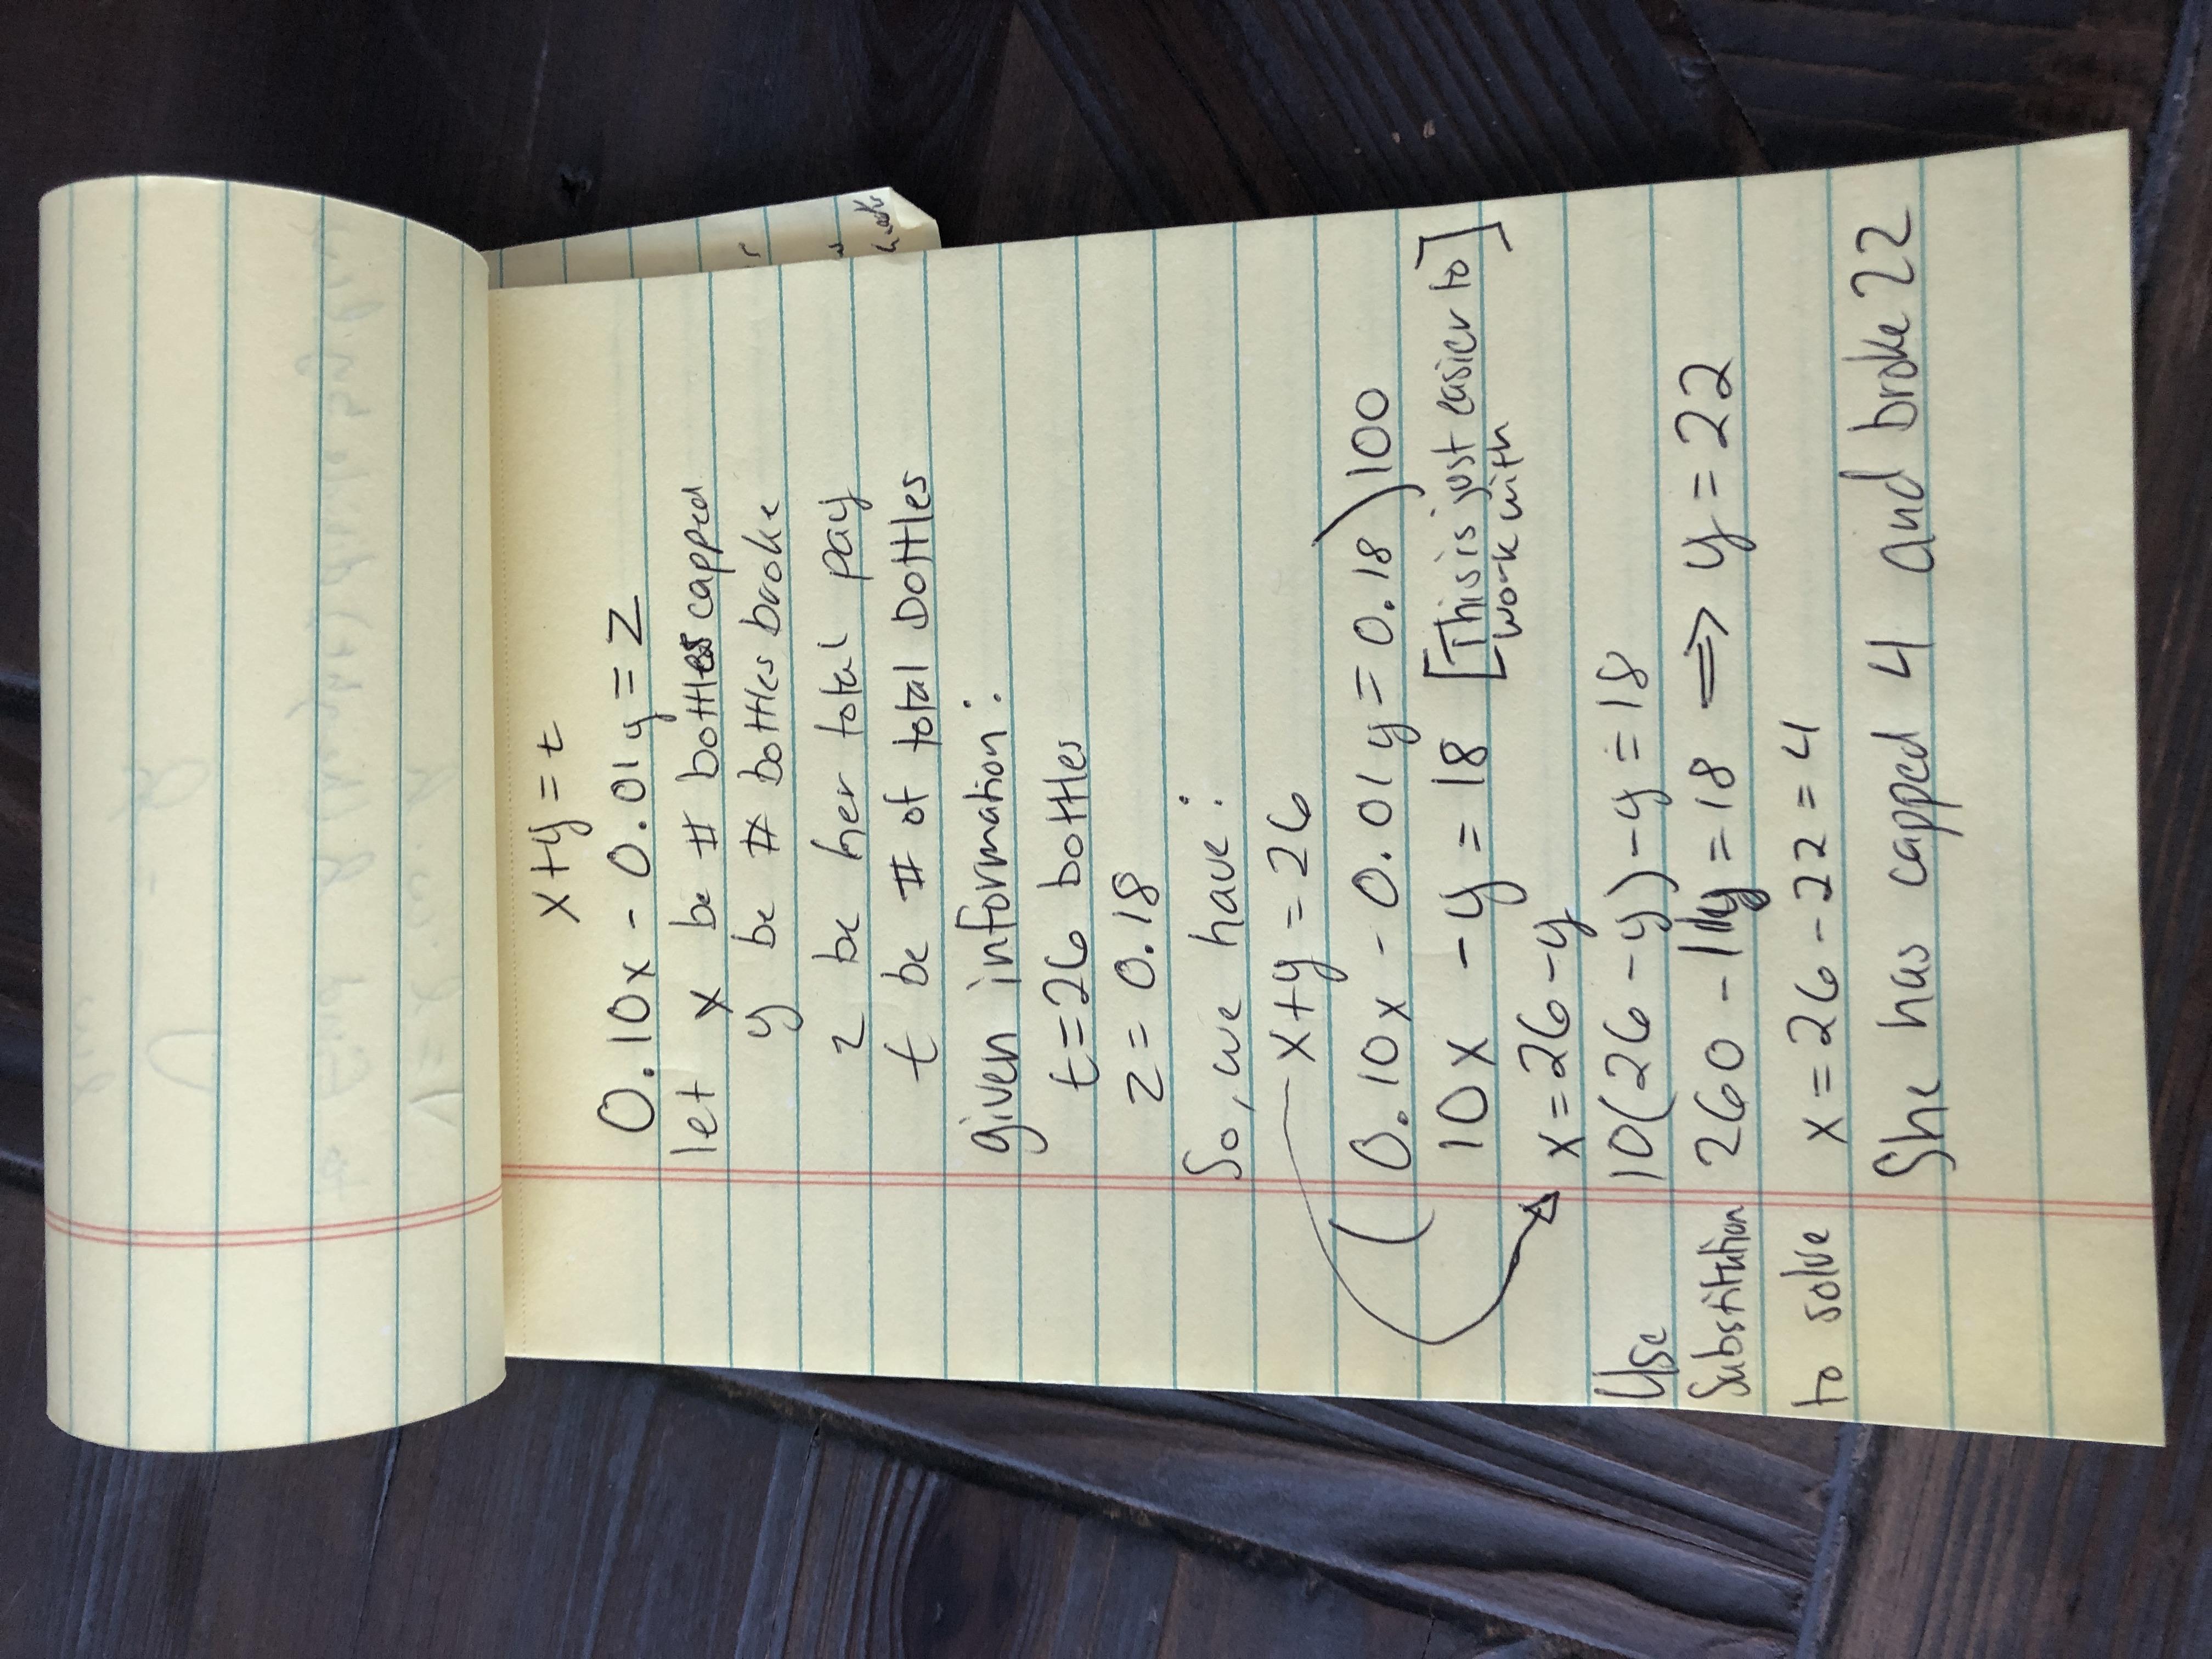 x+y=t
0.10x - 0.01y = z
let x be # bottles capped
y be # bottles broke
z be her total pay
t be # of total bottles
given information:
t=26 bottles
z = 0.18
So, we have:
x+y = 26
(0.10x - 0.01y = 0.18)100
10x - y = 18 [This is just easier to work with]
x=26-y
Use 10(26-y)-y=18
Substitution 260 - 11y = 18 ⟹ y = 22
to solve x = 26-22 = 4
She has capped 4 and broke 22